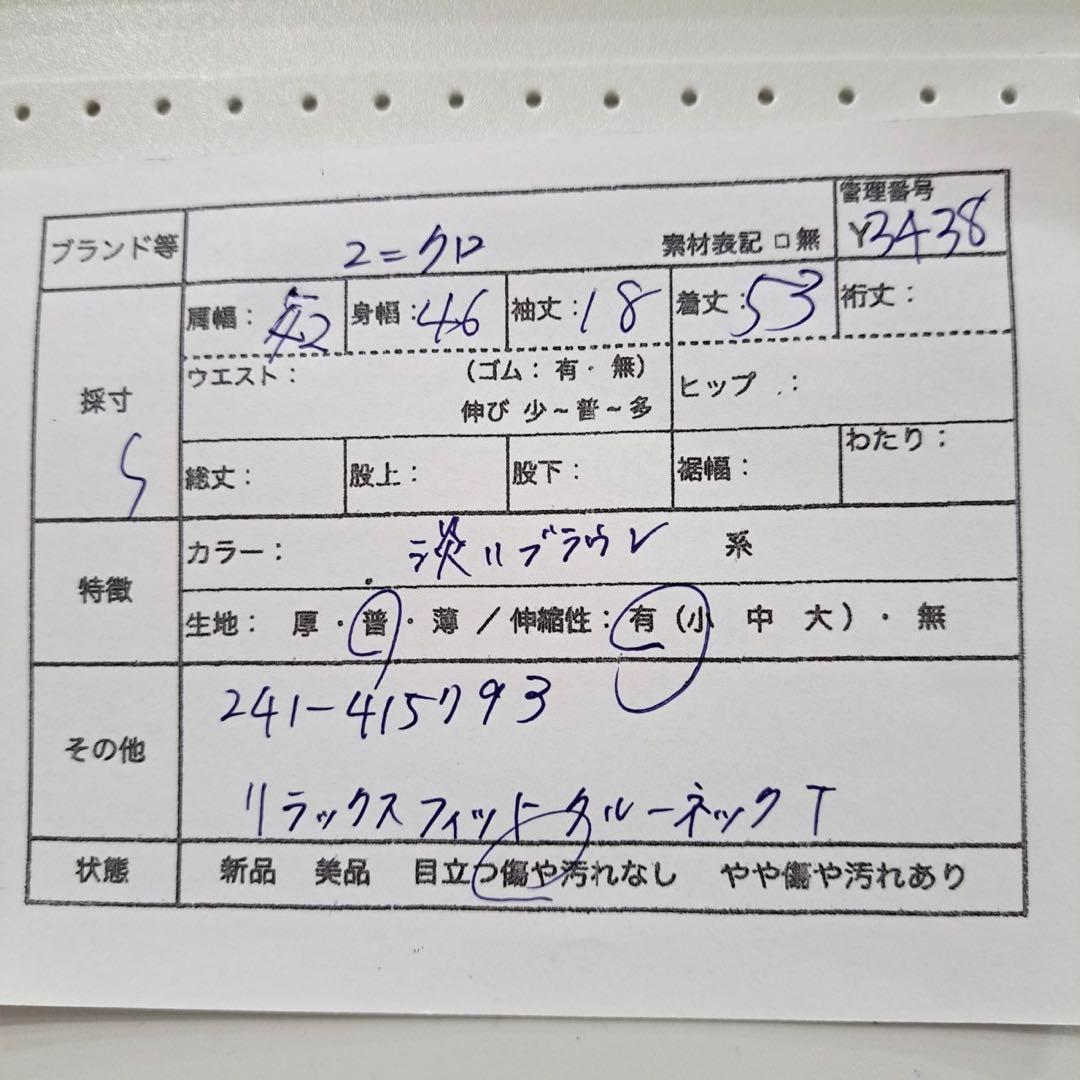 管理番号
ブランド等 ユニクロ 素材表記 □ 無 Y3438
肩幅： 42 身幅：46 袖丈：18 着丈：53 裄丈：
ウエスト： (ゴム：有・無)
伸び 少～普～多 ヒップ ：
採寸
S
総丈： 股上： 股下： 裾幅： わたり：
カラー： 淡いブラウン 系
特徴
生地： 厚・普・薄 / 伸縮性：有 (小 中 大)・無
241-415793
その他
リラックスフィットタルーネックT
状態 新品 美品 目立つ傷や汚れなし やや傷や汚れあり